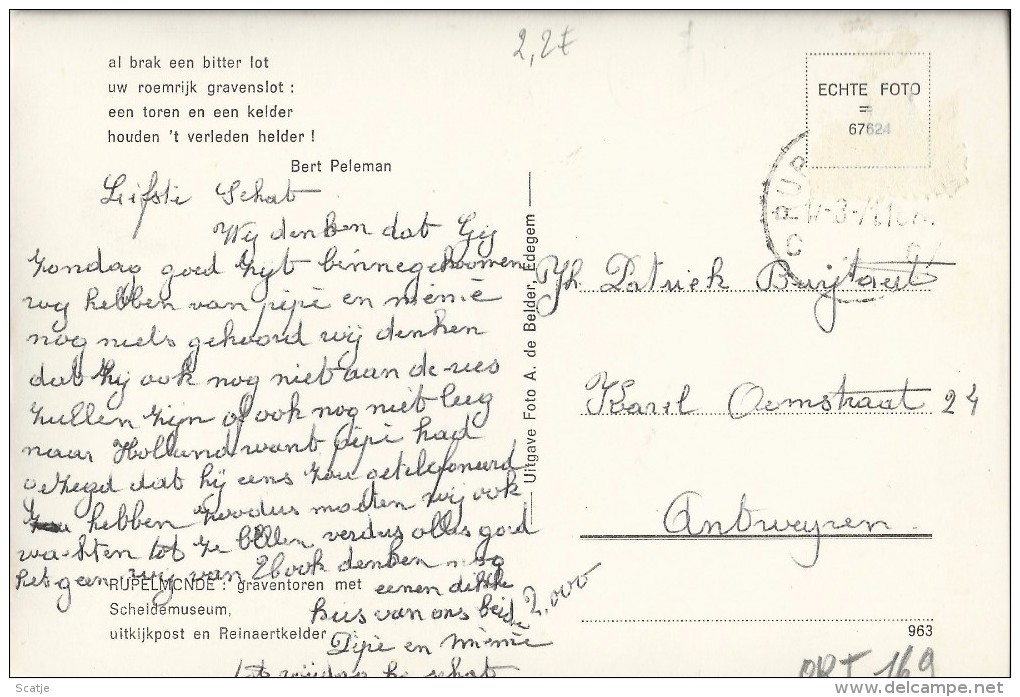 2,2€
al brak een bitter lot
uw roemrijk gravenslot :
een toren en een kelder
houden 't verleden helder !
Bert Peleman
ECHTE FOTO
=
67624
RUP
Liefste Schat
Wij denken dat Gij
zondag goed zijt binnegekoomen
wij hebben van pipie en mémé
nog niets gehoord wij denken
dat hij ook nog niet aan de
zullen zijn of ook nog niet
naar Holland want pipie had
gezegd dat hij eens zou getelefoneerd
hebben moeten wij ook
wachten tot ze bellen verdus alles goed
hetgeen wij van ook denken nog
eenen dikke
kus van ons beide 2.000
Pipie en mémé
tot schat
Uitgave Foto A. de Belder, Edegem
Jh. Patriek Buijtaert
Karel Oomstraat 24
Antwerpen.
RUPELMONDE : graventoren met
Scheldemuseum,
uitkijkpost en Reinaertkelder
963
169
Scatje
delcampe.net